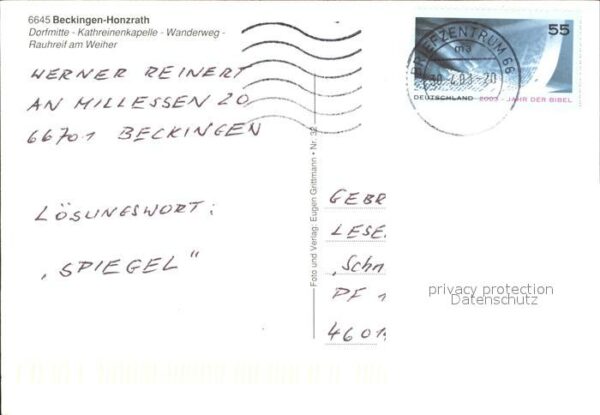 6645 Beckingen-Honzrath
Dorfmitte - Kathreinenkapelle - Wanderweg -
Rauhreif am Weiher
WERNER REINERT
AN MILLESSEN 20
66701 BECKINGEN
LÖSUNGSWORT:
„SPIEGEL"
Foto und Verlag: Eugen Grittmann • Nr. 32
55
BRIEFZENTRUM 66
ma
30.4.03-20
DEUTSCHLAND 2003 - JAHR DER BIBEL
GEBR
LESE
„Schn
PF 1
4601
privacy protection
Datenschutz